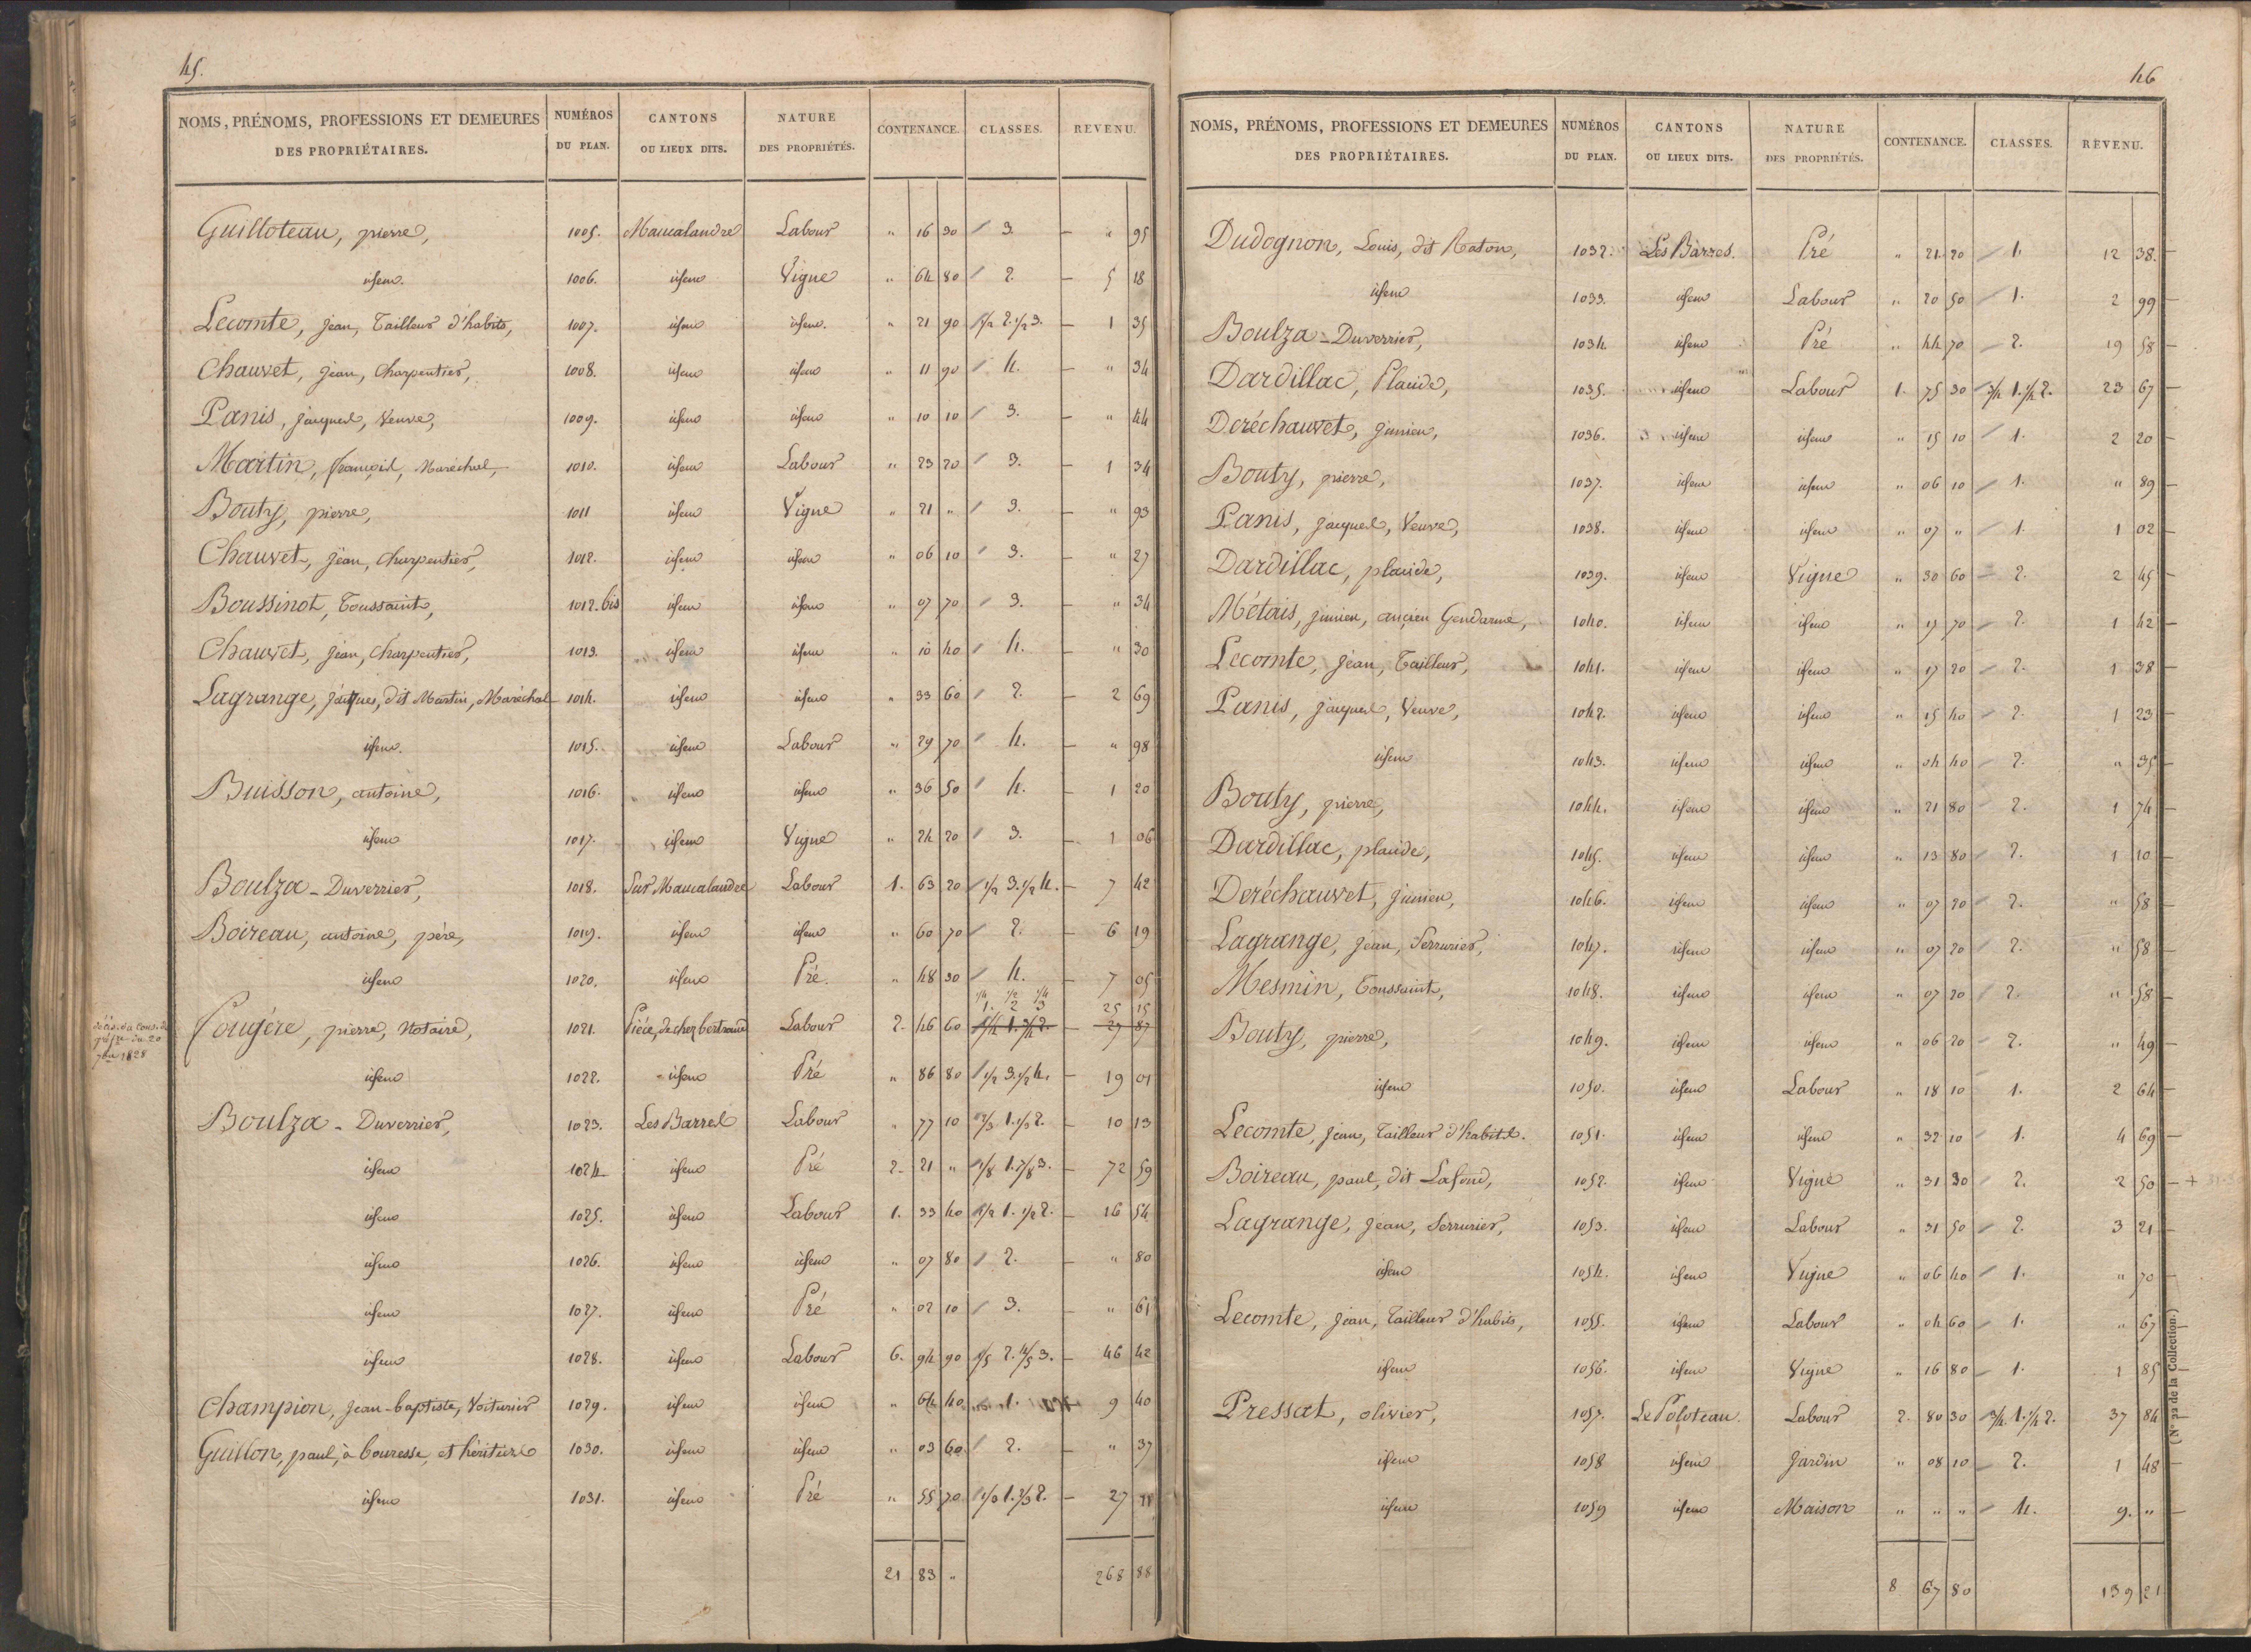 45.
NOMS, PRÉNOMS, PROFESSIONS ET DEMEURES DES PROPRIÉTAIRES. NUMÉROS DU PLAN. CANTONS OU LIEUX DITS. NATURE DES PROPRIÉTÉS. CONTENANCE. CLASSES. REVENU.
Guilloteau, pierre, 1005. Maucalandre Labour " 16 30 3. " 95
idem. 1006. idem Vigne " 64 80 2. 5 18
Lecomte, jean, Tailleur d'habits, 1007. idem idem. " 21 90 1/2 2. 1/2 3. 1 35
Chauvet, jean, Charpentier, 1008. idem idem " 11 90 4. " 34
Panis, jacques, Veuve, 1009. idem idem " 10 10 3. " 44
Martin, françois, Maréchal, 1010. idem Labour " 23 20 3. 1 34
Bouty, pierre, 1011 idem Vigne " 21 " 3. " 93
Chauvet, jean, charpentier, 1012. idem idem " 06 10 3. " 27
Boussinot, Toussaint, 1012. bis idem idem " 07 70 3. " 34
Chauvet, jean, Charpentier, 1013. idem idem " 10 40 4. " 30
Lagrange, jacques, dit Martin, Maréchal 1014. idem idem " 33 60 2. 2 69
idem. 1015. idem Labour " 29 70 4. " 98
Buisson, antoine, 1016. idem idem " 36 50 4. 1 20
idem 1017. idem Vigne " 24 20 3. 1 06
Boulza-Duverrier, 1018. Sur Maucalandre Labour 1. 63 20 1/2 3. 1/2 4. 7 42
Boireau, antoine, père, 1019. idem idem " 60 70 2. 6 19
idem 1020. idem Pré. " 48 30 4. 7 05
1/4 1/2 1/4
1. 2 3 25 15
décis. du Cons. de préfre du 20 7bre 1828
Fougère, pierre, Notaire, 1021. Pièce, de chez bertrand Labour 2. 46 60 1/4 1. 3/4 2. 27 87
idem 1022. idem Pré " 86 80 1/2 3. 1/2 4. 19 01
Boulza - Duverrier, 1023. Les Barres Labour " 77 10 2/3 1. 1/3 2. 10 13
idem 1024 idem Pré 2. 21 " 1/8 1. 7/8 3. 72 59
idem 1025. idem Labour 1. 33 40 1/2 1. 1/2 2. 16 54
idem 1026. idem idem " 07 80 2. " 80
idem 1027. idem Pré " 02 10 3. " 61
idem 1028. idem Labour 6. 94 90 1/5 2. 4/5 3. 46 42
Champion, jean-baptiste, Voiturier 1029. idem idem " 64 40 1. 9 40
Guillon, paul, à bouresse, et héritiers 1030. idem idem " 03 60 2. " 37
idem 1031. idem Pré " 55 70 1/3 1. 2/3 2. 27
21 83 " 268 88
46
NOMS, PRÉNOMS, PROFESSIONS ET DEMEURES DES PROPRIÉTAIRES. NUMÉROS DU PLAN. CANTONS OU LIEUX DITS. NATURE DES PROPRIÉTÉS. CONTENANCE. CLASSES. REVENU.
Dudognon, Louis, dit Raton, 1032. Les Barres. Pré " 21 20 1. 12 38.
idem 1033. idem Labour " 20 50 1. 2 99
Boulza-Duverrier, 1034. idem Pré " 44 70 2. 19 58
Dardillac, Placide, 1035. idem Labour 1. 75 30 3/4 1. 1/4 2. 23 67
Deréchauvet, junien, 1036. idem idem " 15 10 1. 2 20
Bouty, pierre, 1037. idem idem " 06 10 1. " 89
Panis, jacques, Veuve, 1038. idem idem " 07 " 1. 1 02
Dardillac, placide, 1039. idem Vigne " 30 60 2. 2 45
Métais, junien, ancien Gendarme, 1040. idem idem " 17 70 2. 1 42
Lecomte, jean, Tailleur, 1041. idem idem " 17 20 2. 1 38
Panis, jacques, Veuve, 1042. idem idem " 15 40 2. 1 23
idem 1043. idem idem " 04 40 2. " 35
Bouty, pierre, 1044. idem idem " 21 80 2. 1 74
Dardillac, placide, 1045. idem idem " 13 80 2. 1 10
Deréchauvet, junien, 1046. idem idem " 07 20 2. " 58
Lagrange, jean, Serrurier, 1047. idem idem " 07 20 2. " 58
Mesmin, Toussaint, 1048. idem idem " 07 20 2. " 58
Bouty, pierre, 1049. idem idem " 06 20 2. " 49
idem 1050. idem Labour " 18 10 1. 2 64
Lecomte, jean, Tailleur d'habits. 1051. idem idem " 32 10 1. 4 69
Boireau, paul, dit Lafond, 1052. idem Vigne " 31 30 2. 2 50
Lagrange, jean, Serrurier, 1053. idem Labour " 31 50 2. 3 21
idem 1054. idem Vigne " 06 40 1. " 70
Lecomte, jean, Tailleur d'habits, 1055. idem Labour " 04 60 1. " 67
idem 1056. idem Vigne " 16 80 1. 1 85
Pressat, olivier, 1057. Le Poloteau. Labour 2. 80 30 3/4 1. 1/4 2. 37 84
idem 1058 idem Jardin " 08 10 2. 1 48
idem 1059 idem Maison " " " 4. 9. "
8 67 80 139 21
(N° 22 de la Collection.)